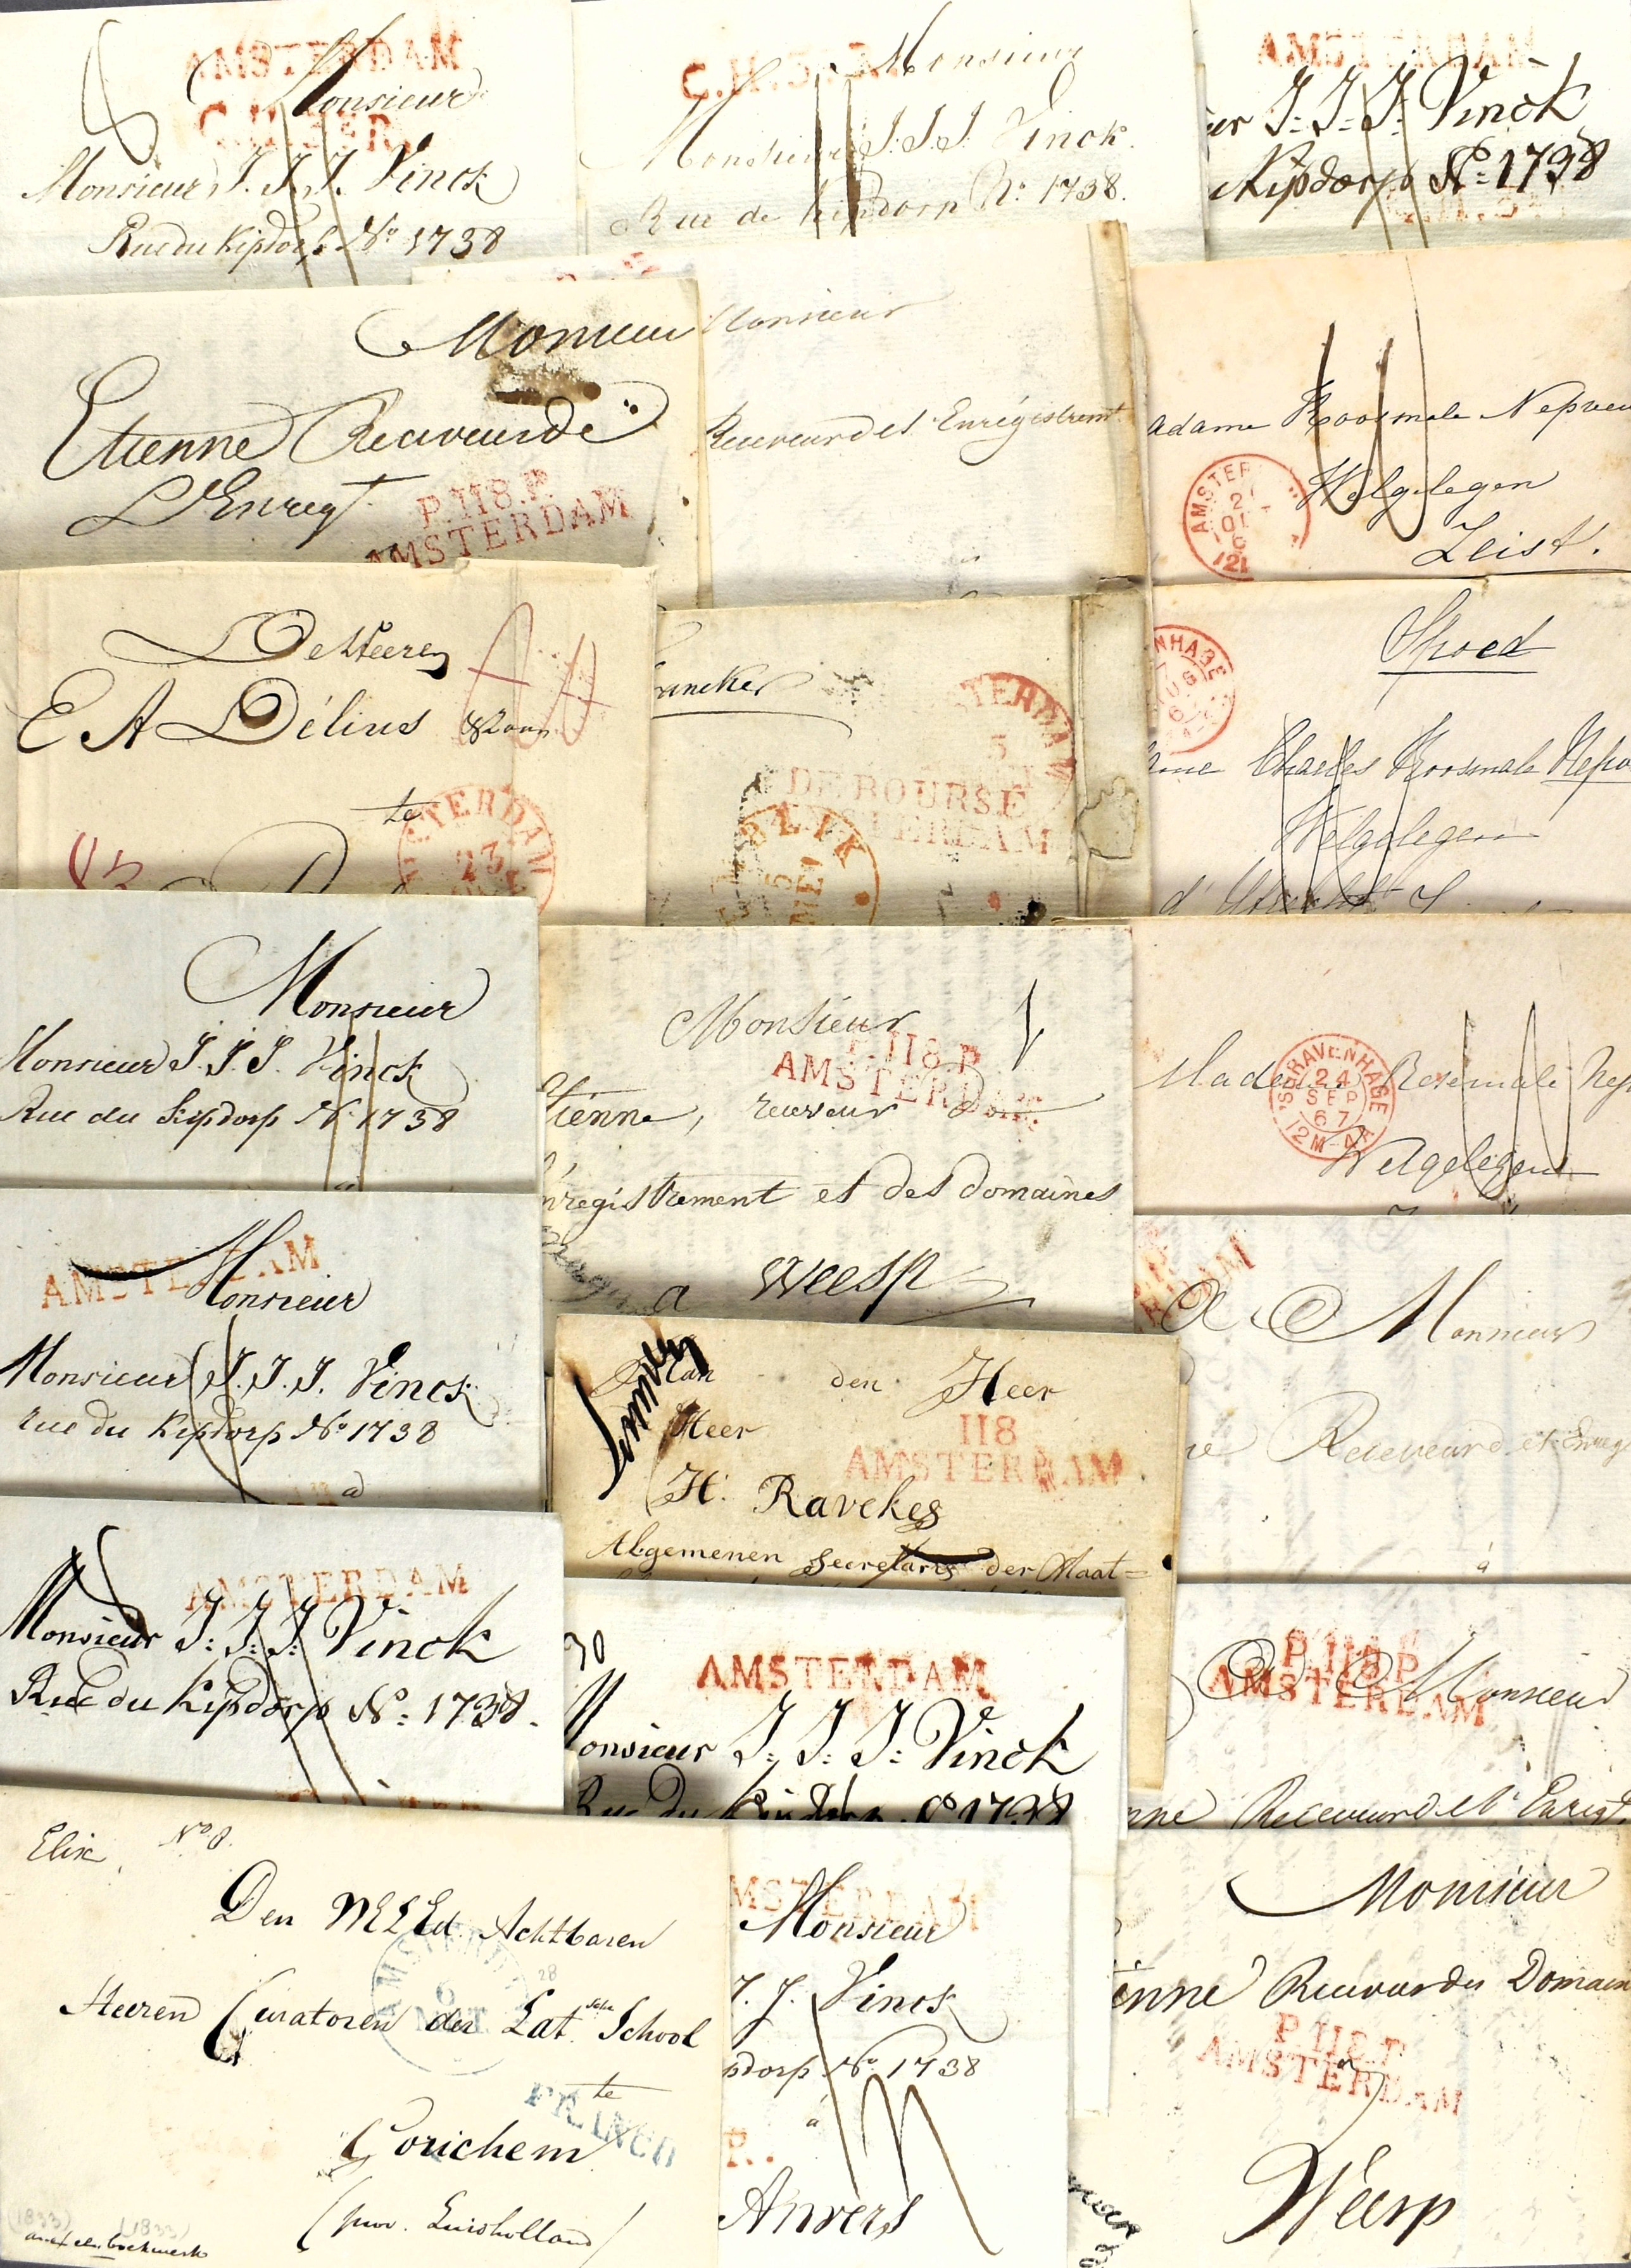 AMSTERDAM
Monsieur
C.H.3.R.
Monsieur J. J. J. Vinck
Rue du Kipdorp No 1738
Monsieur
Monsieur J. J. J. Vinck.
Rue de Kipdorp No. 1738.
AMSTERDAM
J: J: J: Vinck
Kipdorp No: 1738
Monsieur
Etienne Receveur de
L'Enregt.
P.118.P.
AMSTERDAM
Monsieur
Receveur de l'Enregistremt.
adame Roosmale Nepveu
Welgelegen
Zeist.
AMSTER
De Heeren
E A Délius & Zoon
te
AMSTERDAM
23
ancker
5
DE BOURSE
AMSTERDAM
Spoed
Charles Roosmale Nepv
Welgelegen
Monsieur
Monsieur J. J. J. Vinck
Rue du Kipdorp No 1738
Monsieur
P.118.P
AMSTERDAM
tienne, receveur de
nregistrement et des domaines
a Weesp
'SGRAVENHAGE
24
SEP
67
12M-4A
Welgelegen
AMSTERDAM
Monsieur
Monsieur J. J. J. Vinck
rue du Kipdorp No 1738
a
Aan den Heer
Heer
H. Ravekes
118
AMSTERDAM
Algemenen Secretaris der Maat=
A Monsieur
Receveur de l'Enreg
à
AMSTERDAM
Monsieur J: J: J: Vinck
Rue du Kipdorp No: 1738.
30
AMSTERDAM
onsieur J: J: J: Vinck
Rue Du Kipdorp No 1738
P.118.P
AMSTERDAM
A Monsieur
nne Receveur de l'Enregt.
Elix No 8.
Den WElEd. Achtbaren
Heeren Curatoren der Latsche School
te
FRANCO
Gorichem
(prov. Zuidholland)
(1833) (1833)
MSTERDAM
Monsieur
J. J. Vinck
pdorp No 1738
à
R.
Anvers
Monsieur
enne Receveur des Domain
P.118.P
AMSTERDAM
a
Weesp